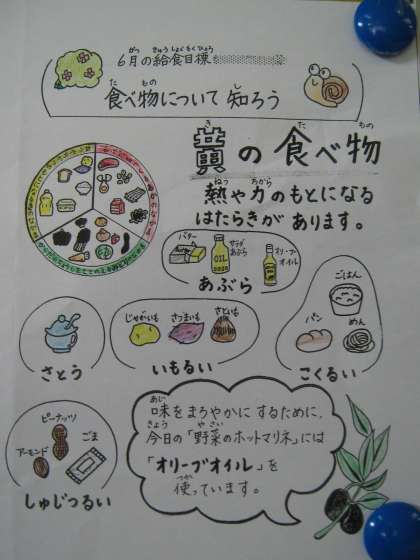 6月の給食目標
食べ物について知ろう
黄の食べ物
熱や力のもとになる
はたらきがあります。
バター
サラダあぶら
OIL
オリーブオイル
あぶら
さとう
じゃがいも
さつまいも
さといも
いもるい
ごはん
パン
めん
こくるい
ピーナッツ
アーモンド
ごま
しゅじつるい
味をまろやかにするために、
今日の「野菜のホットマリネ」には
「オリーブオイル」を
使っています。